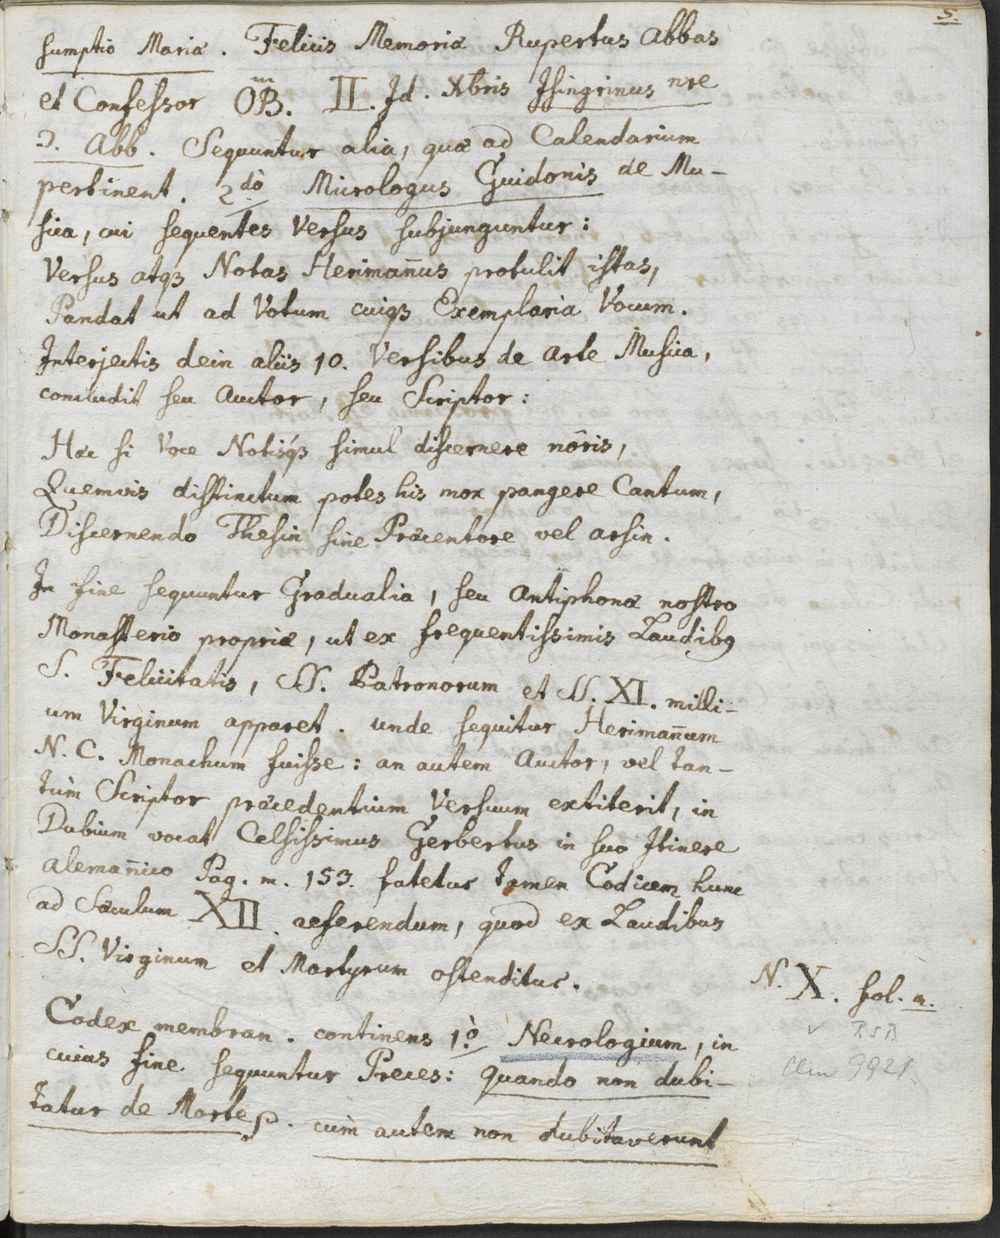 5.
sumptio Mariæ. Feliciis Memoriæ Rupertus Abbas
et Confessor OB.m II. Jd. Xbris Isingrinus nre
Ɔ. Abb. Sequuntur alia, quæ ad Calendarium
pertinent. 2.dò Micrologus Guidonis de Mu-
sica, cui sequentes Versus subjunguntur:
Versus atqȝ Notas Herimañus protulit istas,
Pandat ut ad Votum cuiqȝ Exemplaria Vocum.
Interjectis dein aliis 10. Versibus de arte Musica,
concludit seu Auctor, seu Scriptor:
Hæc si Voce Notisqȝ simul discernere nôris,
Quemvis distinctum potes his mox pangere Cantum,
Discernendo Thesin sine Præcentore vel arsin.
In fine sequuntur Gradualia, seu Antiphonæ nostro
Monasterio propriæ, ut ex frequentissimis Laudibꝰ
S. Felicitatis, SS. Patronorum et SS. XI. milli-
um Virginum apparet. unde sequitur Herimañum
N. C. Monachum fuisse: an autem Auctor, vel tan-
tùm Scriptor præcedentium Versuum extiterit, in
Dubium vocat Celsissimus Gerbertus in suo Itinere
alemañico Pag. m. 153. fatetur tamen Codicem hunc
ad Sæculum XII. referendum, quod ex Laudibus
SS. Virginum et Martyrum ostenditur.
N. X. fol. m.
Codex membran. continens 1.ò Necrologium, in
RSB
cuius fine sequuntur Preces: quando non dubi-
Clm 9921
tatur de Morte p. cùm autem non dubitaverunt